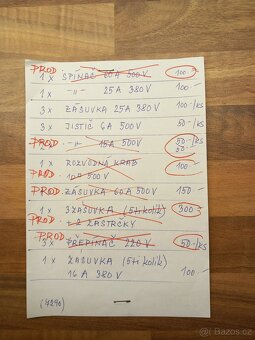 PROD.
1 x SPÍNAČ 60A 500V 100.-
1 x -"- 25A 380V 100.-
3 x ZÁSUVKA 25A 380V 100.-/KS
3 x JISTIČ 6A 500V 50.-/KS
PROD. -"- 15A 500V 50.-/KS
50.-
1 x ROZVODNÁ KRAB. 100.-
PROD. 10A 500V
PROD. ZÁSUVKA 60A 500V 150.-
1 x 3 ZÁSUVKA (5ti kolík) 300.-
PROD. + 2 ZASTRČKY
PROD.
3 x PŘEPINAČ 220V 50.-/KS
1 x ZÁSUVKA (5ti kolík)
16A 380V 100.-
Bazos.cz